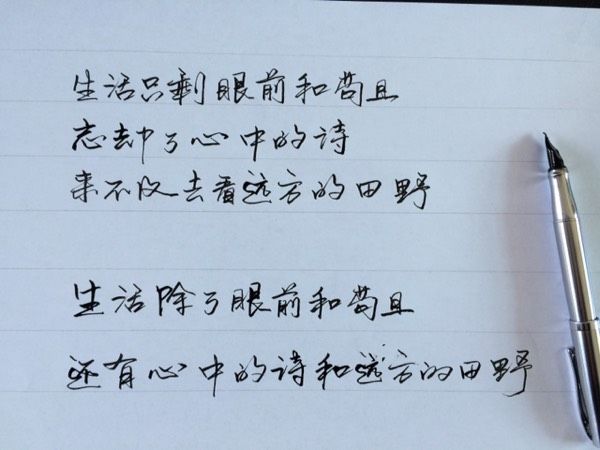 生活只剩眼前和苟且
忘却了心中的诗
来不及去看远方的田野
生活除了眼前和苟且
还有心中的诗和远方的田野